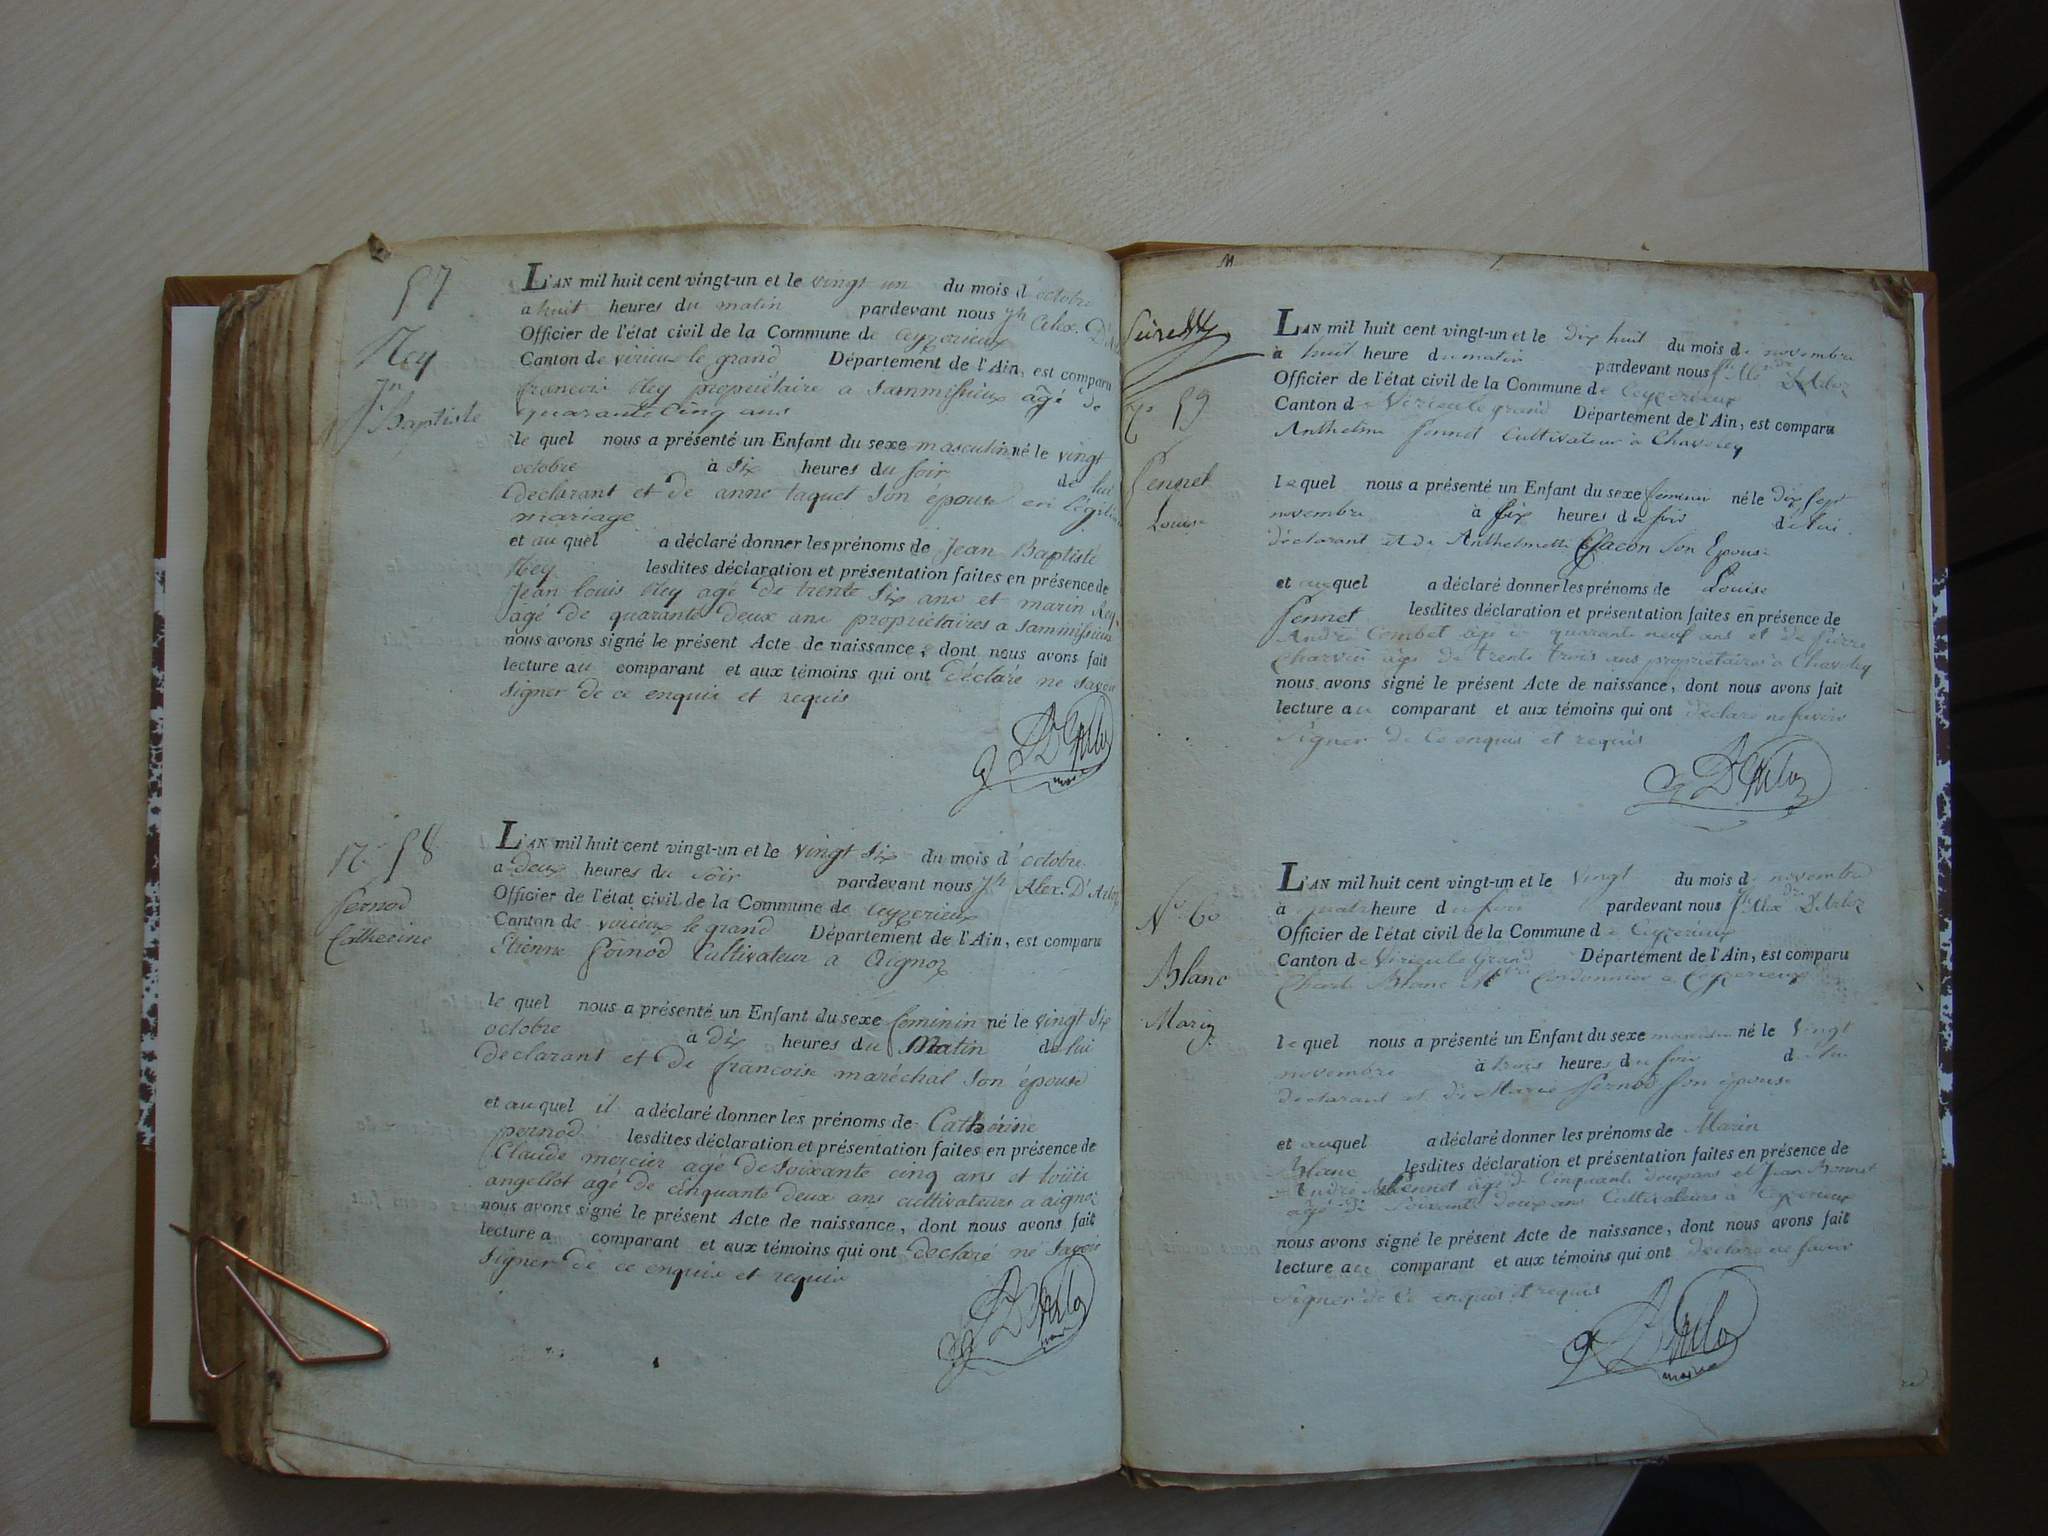 57
Rey
Jn
Baptiste
L'AN mil huit cent vingt-un et le vingt un du mois d'octobre
a huit heures du matin pardevant nous jh Alex. D'Arloz
Officier de l'état civil de la Commune de Ceyzerieux
Canton de virieux le grand Département de l'Ain, est comparu
francois Rey propriétaire a Sammissieux agé de
quarante Cinq ans
le quel nous a présenté un Enfant du sexe masculin né le vingt
octobre à six heures du soir de lui
declarant et de anne taquet son épouse en légitime
mariage
et au quel a déclaré donner les prénoms de Jean Baptiste
Rey lesdites déclaration et présentation faites en présence de
Jean louis Rey agé de trente six ans et marin Rey
agé de quarante deux ans propriétaires a Sammissieux
nous avons signé le présent Acte de naissance, dont nous avons fait
lecture au comparant et aux témoins qui ont déclaré ne savoir
signer de ce enquis et requis
D'Arloz
maire
No 58
Pernod
Catherine
L'AN mil huit cent vingt-un et le vingt six du mois d'octobre
a deux heures du soir pardevant nous jh Alex. D'Arloz
Officier de l'état civil de la Commune de Ceyzerieux
Canton de virieux le grand Département de l'Ain, est comparu
Etienne Pernod Cultivateur a Aignoz
le quel nous a présenté un Enfant du sexe feminin né le vingt six
octobre à dix heures du Matin de lui
declarant et de francoise maréchal son épouse
et au quel il a déclaré donner les prénoms de Catherine
pernod lesdites déclaration et présentation faites en présence de
Claude mercier agé de soixante cinq ans et louis
angellot agé de cinquante deux ans cultivateurs a aignoz
nous avons signé le présent Acte de naissance, dont nous avons fait
lecture a comparant et aux témoins qui ont declaré ne savoir
signer de ce enquis et requis
D'Arloz
maire
No 59
Pennet
Louise
L'AN mil huit cent vingt-un et le dix huit du mois de novembre
à huit heure du matin pardevant nous D'Arloz
Officier de l'état civil de la Commune de Ceyzerieux
Canton de Virieu le grand Département de l'Ain, est comparu
Anthelme Pennet Cultivateur a Chavoley
le quel nous a présenté un Enfant du sexe feminin né le dix sept
novembre à six heures du soir de lui
déclarant et de Anthelmette Chacon son Epouse
et au quel a déclaré donner les prénoms de Louise
Pennet lesdites déclaration et présentation faites en présence de
André Combet agé de quarante neuf ans et de Pierre
Charvin agé de trente trois ans propriétaires a Chavoley
nous avons signé le présent Acte de naissance, dont nous avons fait
lecture au comparant et aux témoins qui ont déclaré ne savoir
signer de ce enquis et requis
D'Arloz
No 60
Blanc
Marin
L'AN mil huit cent vingt-un et le vingt du mois de novembre
à quatre heure du soir pardevant nous jh Alex dre D'Arloz
Officier de l'état civil de la Commune de Ceyzerieux
Canton de Virieu le Grand Département de l'Ain, est comparu
Blanc Cordonnier a Ceyzerieux
le quel nous a présenté un Enfant du sexe masculin né le vingt
novembre à trois heures du soir de lui
declarant et de Marie Pernod son épouse
et au quel a déclaré donner les prénoms de Marin
Blanc lesdites déclaration et présentation faites en présence de
André agé de Cinquante deux ans et Jean Bonnet
agé de soixante deux ans Cultivateurs a Ceyzerieux
nous avons signé le présent Acte de naissance, dont nous avons fait
lecture au comparant et aux témoins qui ont déclaré ne savoir
signer de ce enquis et requis
D'Arloz
maire